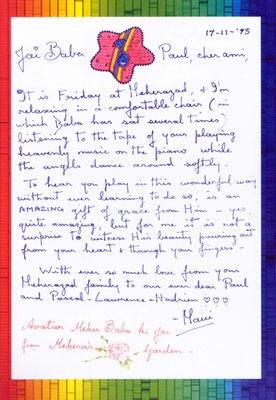 17-11-'95
Jai Baba Paul, cher ami,
It is Friday at Meherazad, & I'm
relaxing in a comfortable chair (in
which Baba has sat several times)
listening to the tape of your playing
heavenly music on the piano while
the angels dance around softly.
To hear you play in this wonderful way
without ever learning to do so, is an
AMAZING gift of grace from Him - yes,
quite amazing, but for me it is not a
surprise to witness His beauty pouring out
from your heart & through your fingers -
With ever so much love from your
Meherazad family to our ever dear Paul
and Pascal - Lawrence - Hadrien ♡♡♡
- Mani
Avatar Meher Baba ki jai
from Mehera's Garden -